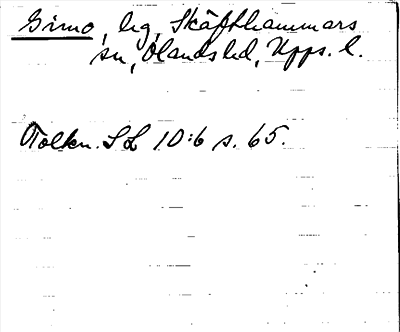 Gimo, hg, Skäfthammars
sn, Olands hd, Upps. l.
Tolkn. SL 10:6 s. 65.